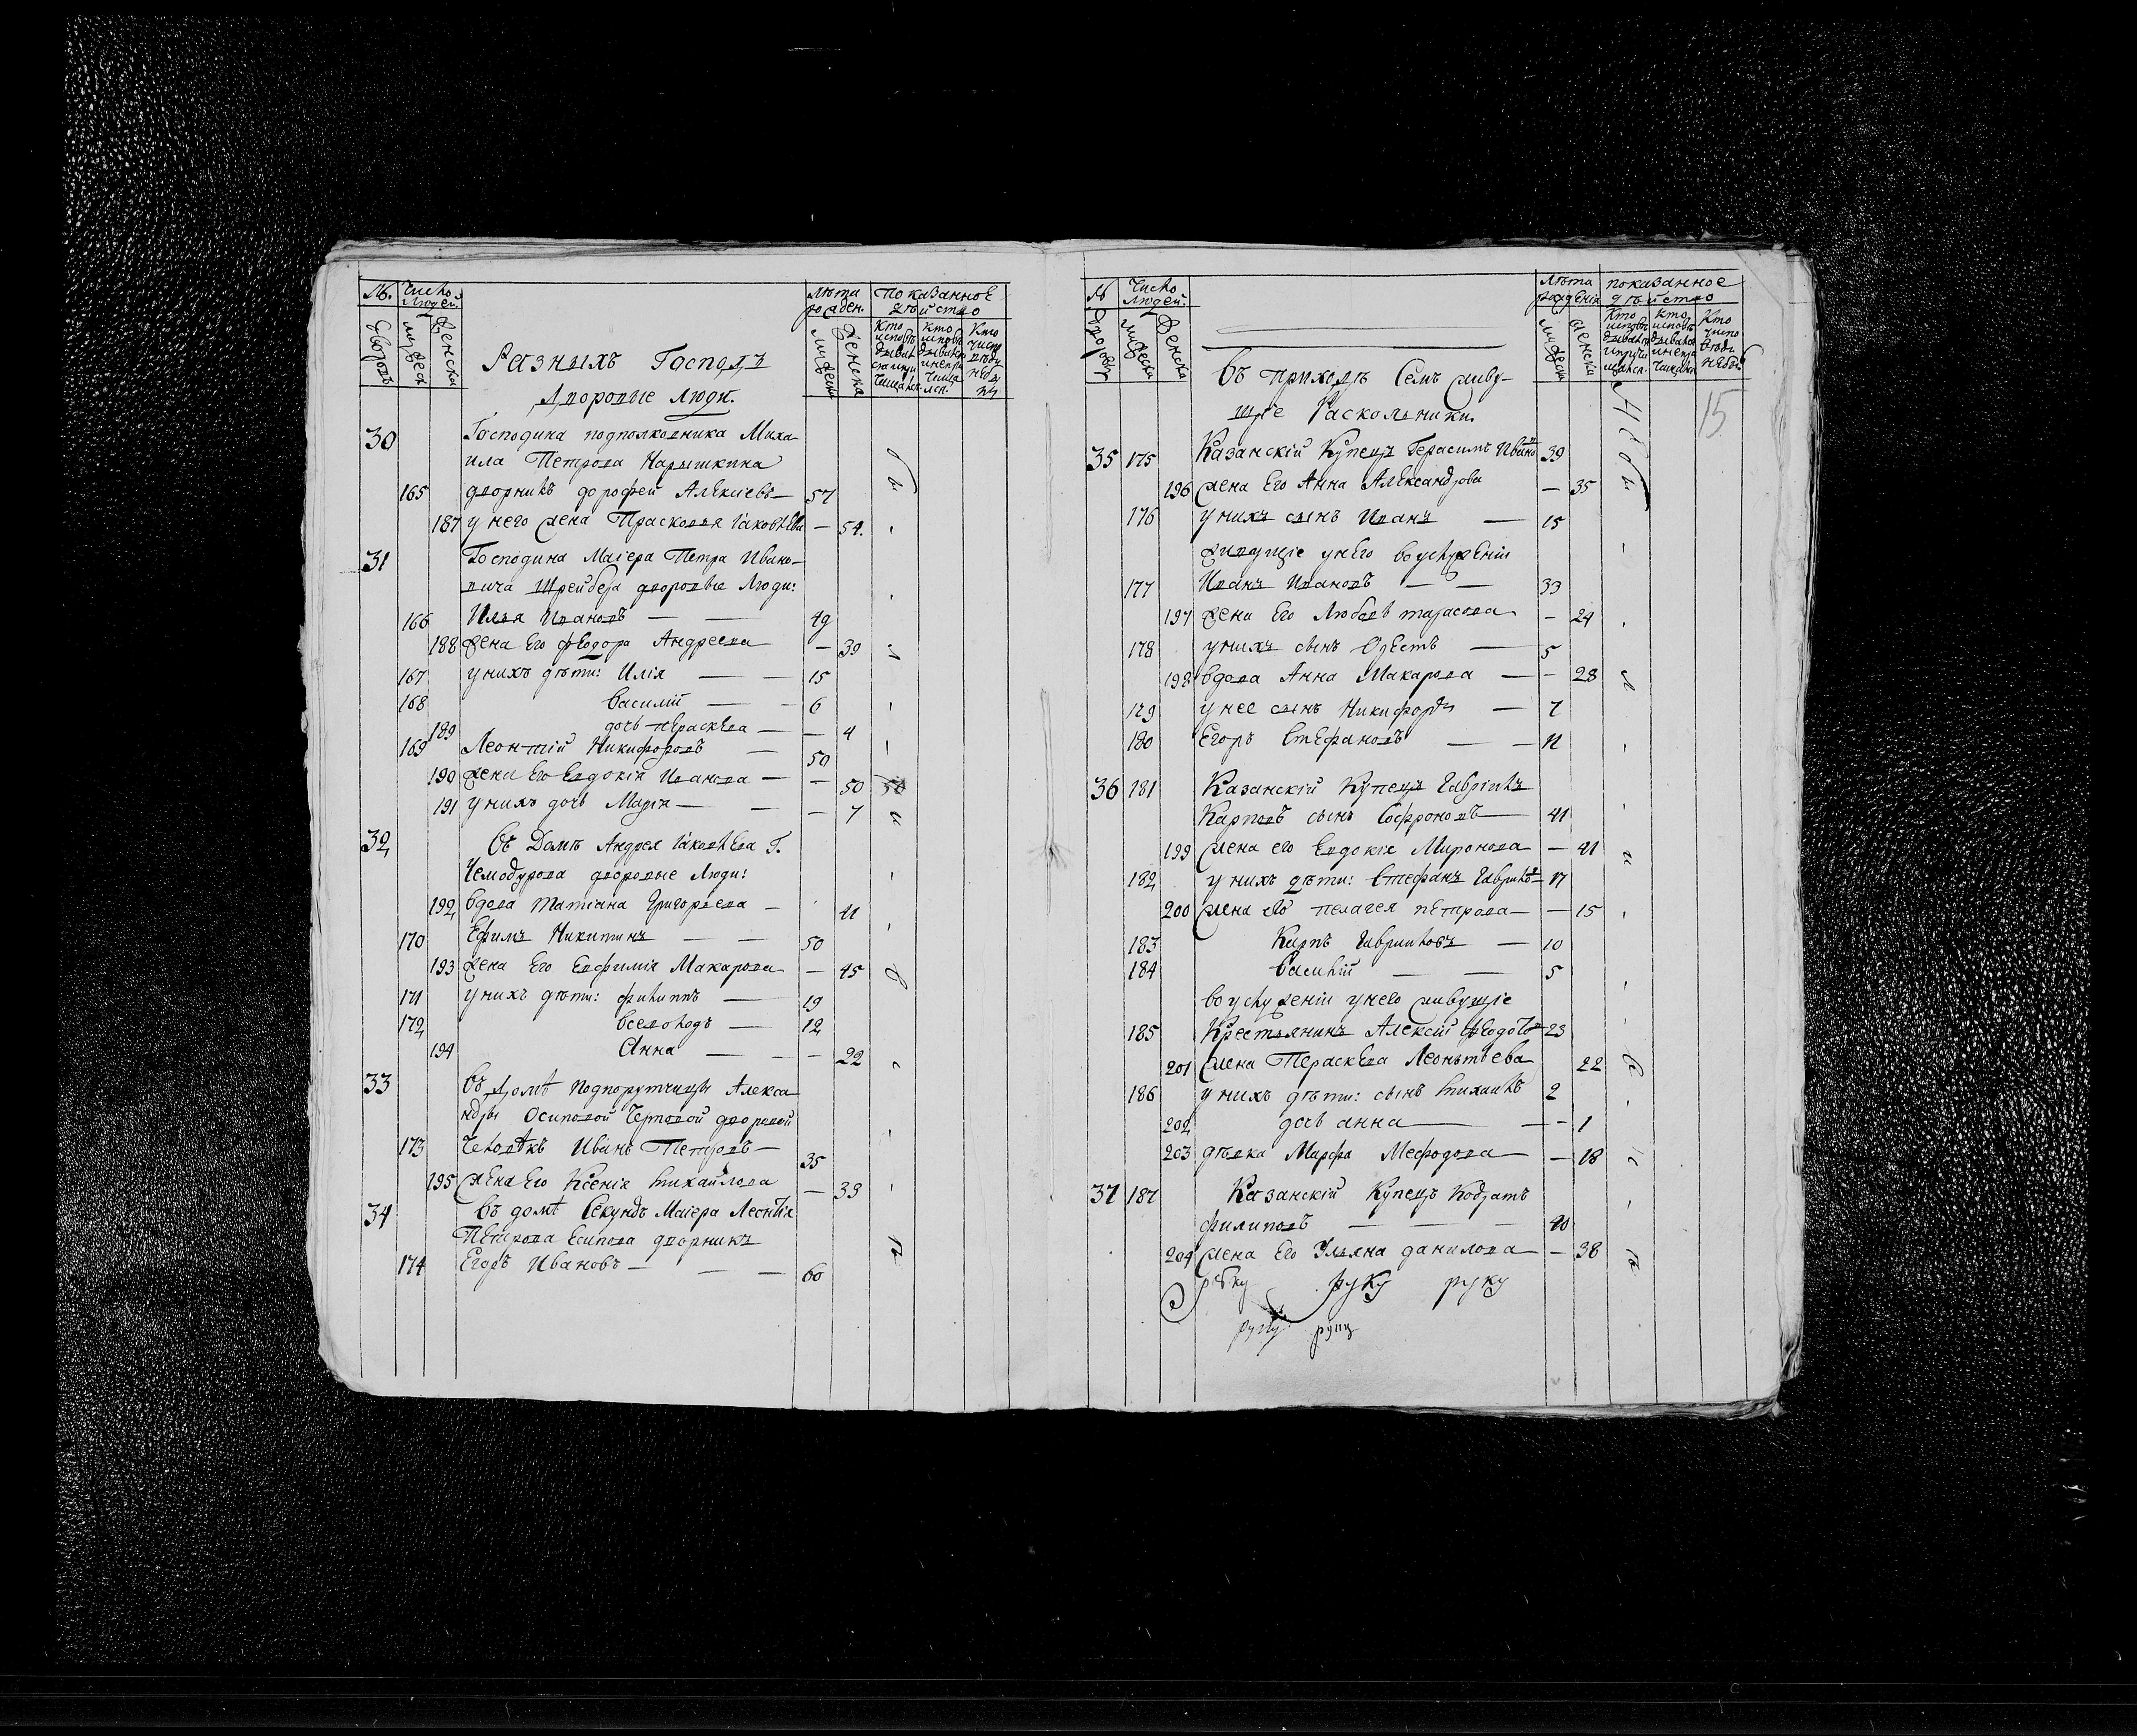 №. Число Людей. Лѣта рожден. Показанное дѣйство
Дворовъ мужеска Женска мужеска Женска
Разныхъ Господъ
Дворовые люди.
30 Господина подполковника Миха-
ила Петрова Нарышкина
165 дворникъ дорофей Алексіевъ — 57
187 у него жена Прасковья Іаковлева — 54.
31 Господина Маіера Петра Ивано-
вича Шрейбера дворовые Люди:
166 Илья Ивановъ — — 49
188 жена Его феодора Андреева — 39
167 у нихъ дѣти: Илія — — 15
168 Василій — — 6
189 дочь перасквва — — 4
169 Леонтій Никифоровъ — 50
190 жена Его Евдокія Иванова — — 50 50
191 у нихъ дочь Марія — — — 7
32 Въ Домѣ Андрея Іаковлева Г.
Чемодурова дворовые Люди:
192 вдова татіана Григорьева — 41
170 Ефимъ Никитинъ — — 50
193 жена Его Евфимія Макарова — — 45
171 у нихъ дѣти: филиппъ — 19
172 Всеволодъ — 12
194 Анна — — — 22
33 Въ домѣ Подпорутчицы Алекса
ндры Осиповой Чертовой дворовой
173 Человѣкъ Иванъ Петровъ — 35
195 жена Его Ксенія михайлова — 33
34 Въ домѣ Секундъ Маіера Леонтія
Петрова Есипова дворникъ
174 Егоръ Ивановъ — — — 60
№ Число Людей. Лѣта рожденія показанное дѣйство
мужеска Женска мужеска женска
15
Въ приходѣ Семъ живу-
щіе Раскольники.
35 175 Казанскій Купецъ Герасимъ Иванов 39
196 жена Его Анна Александрова — 35
176 у нихъ сынъ Иванъ — 15
живущіе у него во услуженіи
177 Иванъ Ивановъ — — 33
197 жена Его Любовь тарасова — 24
178 у нихъ сынъ — 5
198 вдова Анна Макарова — — 28
179 у нее сынъ Никифоръ — 7
180 Егоръ Стефановъ — —
36 181 Казанскій Купецъ Гаврилъ
Карповъ сынъ Софроновъ — 41
199 жена его Евдокія Миронова — 41
182 у нихъ дѣти: Стефанъ Гаврилов — 17
200 жена его пелагея петрова — — 15
183 Карпъ Гавриловъ — 10
184 Василій — — 5
во услуженіи у него живущіе
185 Крестьянинъ Алексій феодотов 23
201 жена Пераскева Леонтьева 22
186 у нихъ дѣти: сынъ михаилъ 2
202 дочь анна — — - 1
203 дѣвка Марфа Мефодова — — 18
37 187 Казанскій Купецъ Кодратъ
филиповъ — — — 40
204 жена Его Ульяна данилова — — 38
руку руку руку